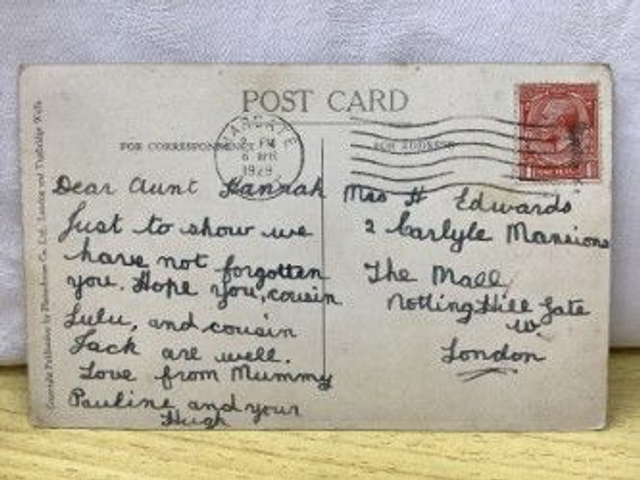 POST CARD
FOR CORRESPONDENCE
FOR ADDRESS
MARGATE
PM
6 APR
1929
Dear Aunt Hannah
Just to show we
have not forgotten
you. Hope you, cousin
Lulu, and cousin
Jack are well.
Love from Mummy
Pauline and your
Hugh
Mrs H Edwards
2 Carlyle Mansions
The Mall
Notting Hill Gate
W.
London
Copyright Publication by Photochrom Co. Ltd. London and Tunbridge Wells